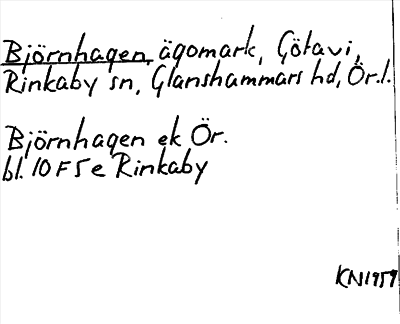 Björnhagen, ägomark, Götavi,
Rinkaby sn, Glanshammars hd, Ör.l.
Björnhagen ek Ör.
bl. 10 F 5 e Rinkaby
KN1959